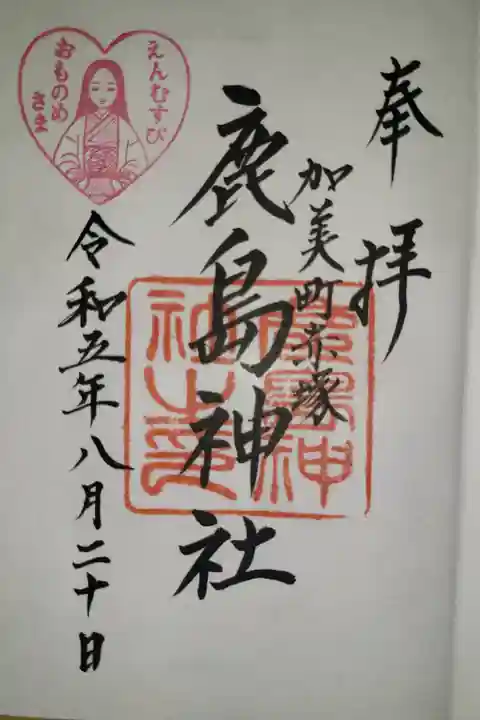 奉拝
加美町赤塚
鹿島神社
鹿島神
社之印
えんむすび
おものめさま
令和五年八月二十日